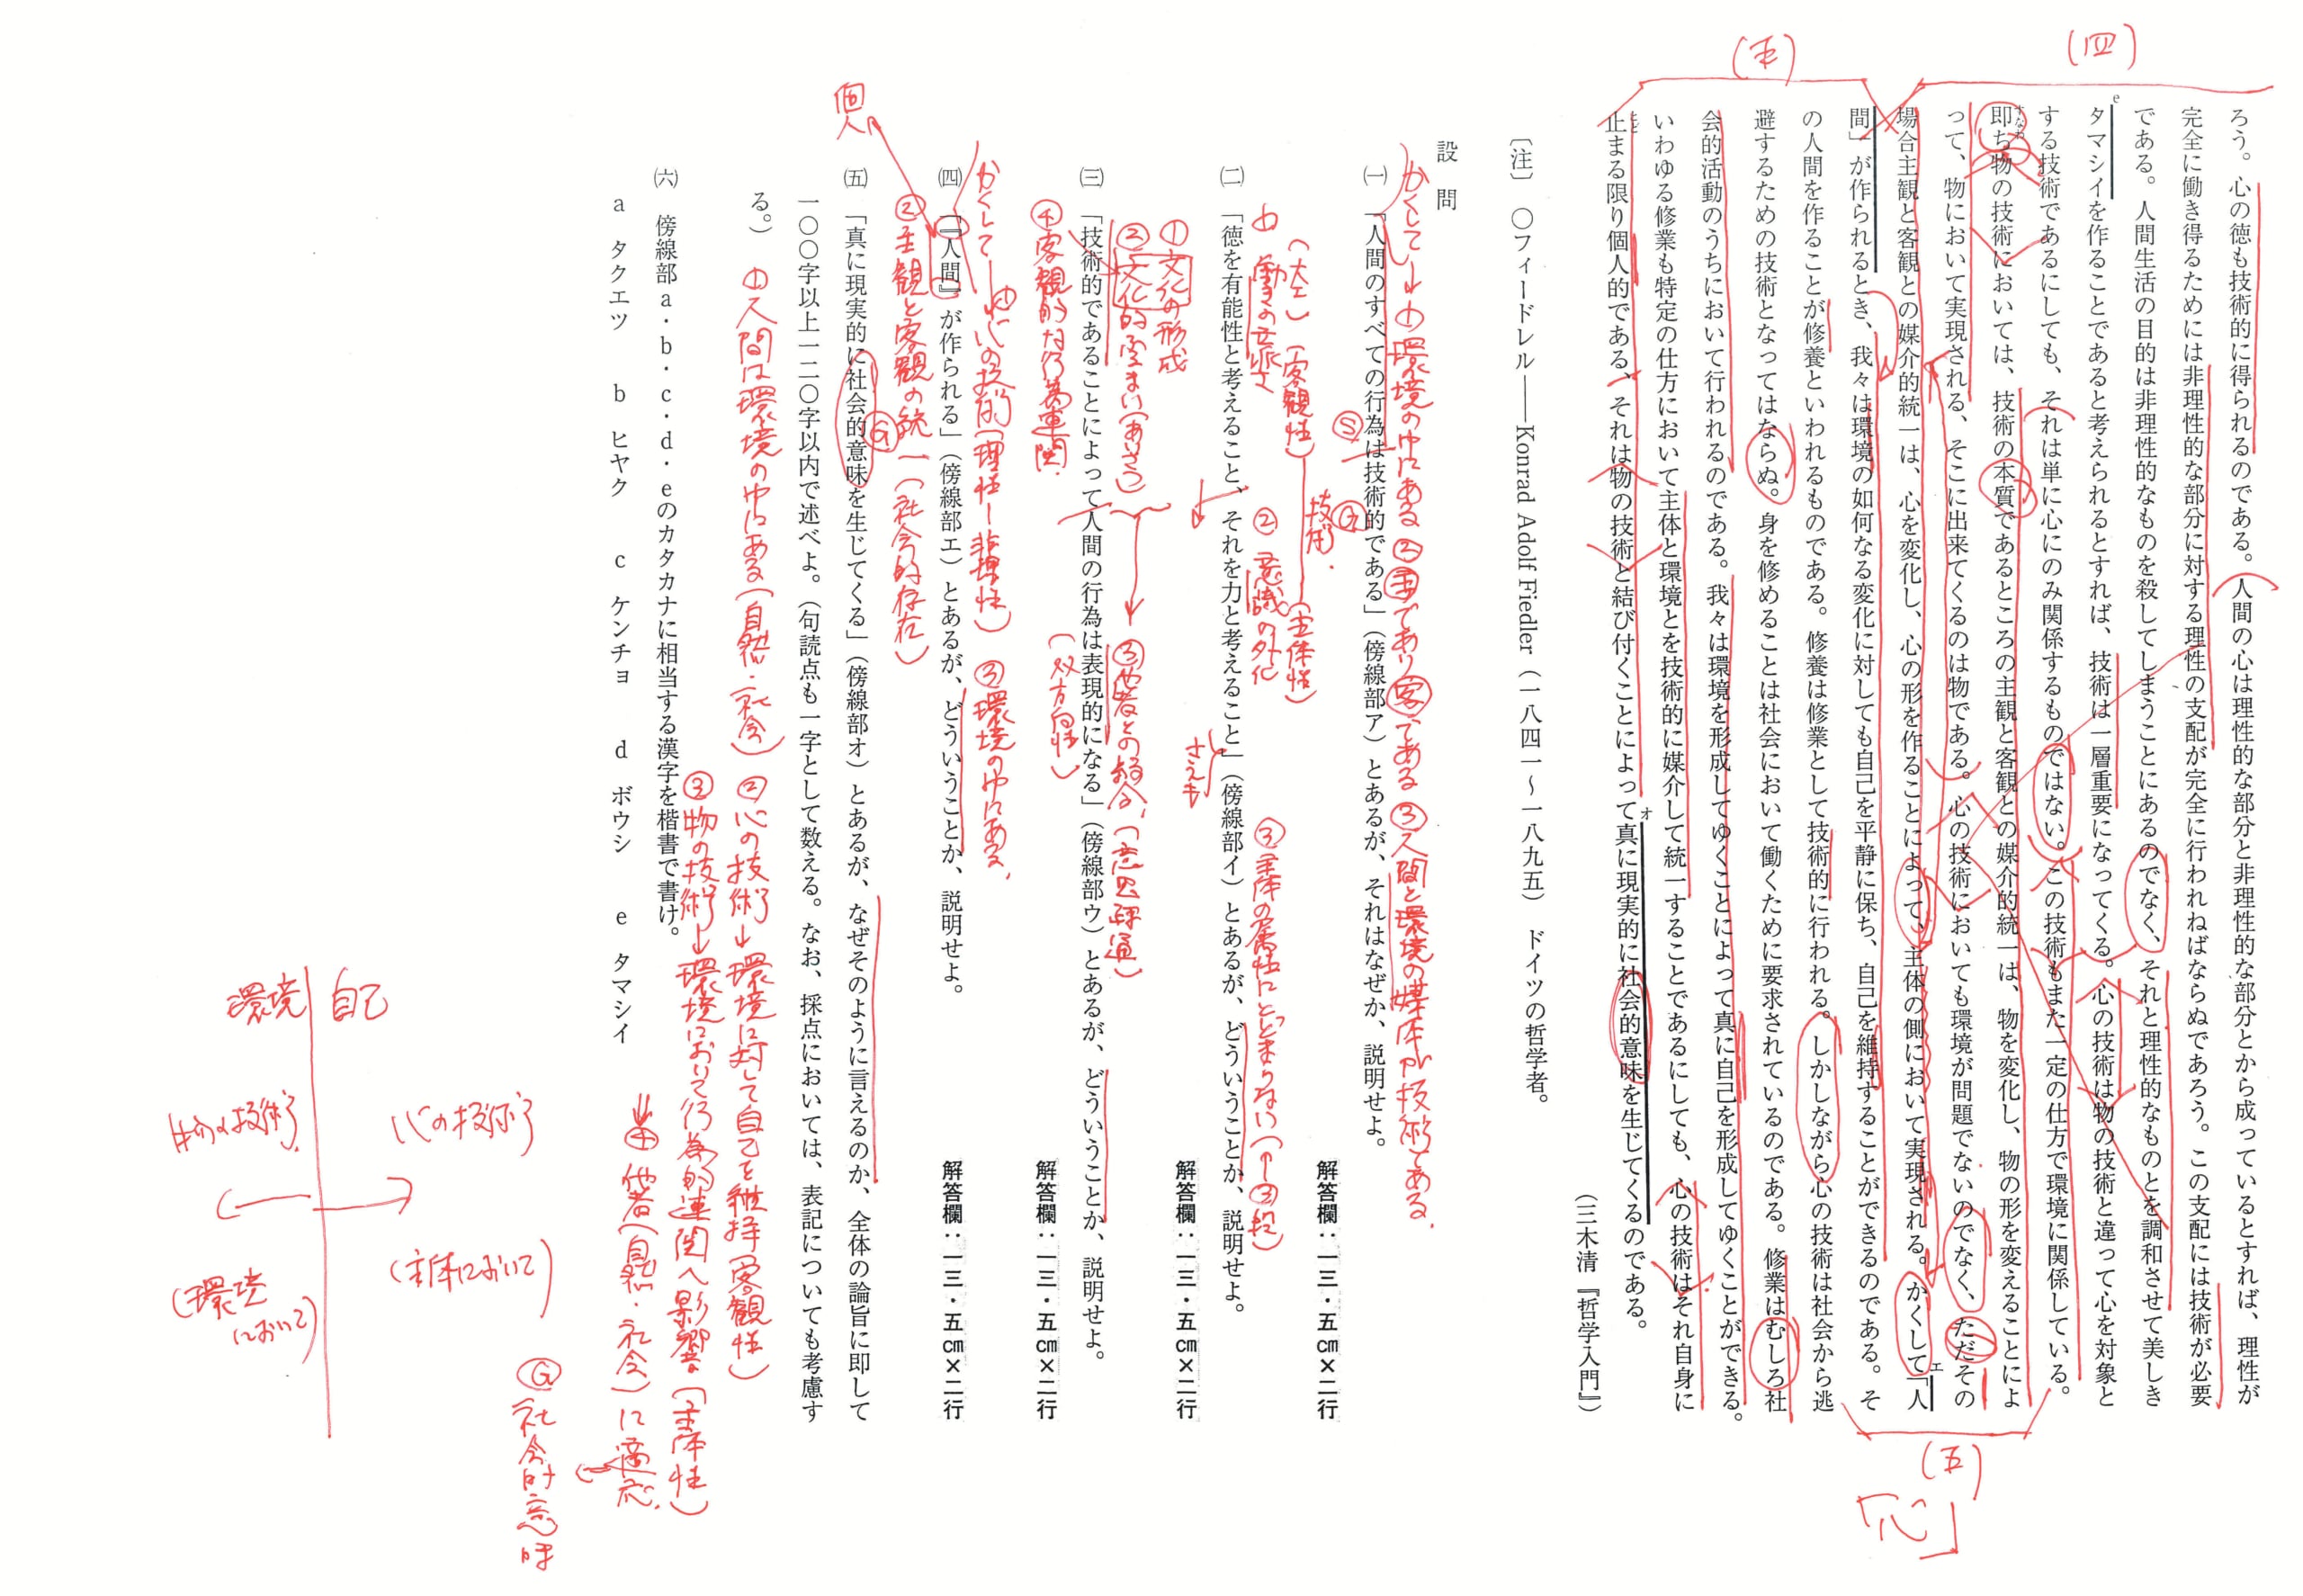 (四)
(五)
ろう。心の徳も技術的に得られるのである。人間の心は理性的な部分と非理性的な部分とから成っているとすれば、理性が
完全に働き得るためには非理性的な部分に対する理性の支配が完全に行われねばならぬであろう。この支配には技術が必要
である。人間生活の目的は非理性的なものを殺してしまうことにあるのでなく、それと理性的なものとを調和させて美しき
タマシイを作ることであると考えられるとすれば、技術は一層重要になってくる。心の技術は物の技術と違って心を対象と
e
する技術であるにしても、それは単に心にのみ関係するものではない。この技術もまた一定の仕方で環境に関係している。
即ち物の技術においては、技術の本質であるところの主観と客観との媒介的統一は、物を変化し、物の形を変えることによ
すなわ
って、物において実現される、そこに出来てくるのは物である。心の技術においても環境が問題でないのでなく、ただその
場合主観と客観との媒介的統一は、心を変化し、心の形を作ることによって、主体の側において実現される。かくして「人
エ
間」が作られるとき、我々は環境の如何なる変化に対しても自己を平静に保ち、自己を維持することができるのである。そ
の人間を作ることが修養といわれるものである。修養は修業として技術的に行われる。しかしながら心の技術は社会から逃
避するための技術となってはならぬ。身を修めることは社会において働くために要求されているのである。修業はむしろ社
会的活動のうちにおいて行われるのである。我々は環境を形成してゆくことによって真に自己を形成してゆくことができる。
いわゆる修業も特定の仕方において主体と環境とを技術的に媒介して統一することであるにしても、心の技術はそれ自身に
止まる限り個人的である、それは物の技術と結び付くことによって真に現実的に社会的意味を生じてくるのである。
とど
オ
(三木清『哲学入門』)
(五)
「心」
〔注〕 ○フィードレル――Konrad Adolf Fiedler(一八四一~一八九五) ドイツの哲学者。
設問
かくして→①環境の中にある ②主であり客である ③人間と環境の媒体が技術である。
㈠ 「人間のすべての行為は技術的である」(傍線部ア)とあるが、それはなぜか、説明せよ。
Ⓢ
Ⓖ
解答欄:一三・五cm×二行
(客観性)
技術
(主体性)
① 働きの立派さ ② 意識の外化 ③主体の属性にとどまらない(↑②段)
㈡ 「徳を有能性と考えること、それを力と考えること」(傍線部イ)とあるが、どういうことか、説明せよ。
さえも
解答欄:一三・五cm×二行
①文化の形成
②文化的 ③他者との
㈢ 「技術的であることによって人間の行為は表現的になる」(傍線部ウ)とあるが、どういうことか、説明せよ。
(双方向性)
④客観的な行為連関
解答欄:一三・五cm×二行
かくして→①心の技術(理性―非理性) ③環境の中にある。
㈣ 「『人間』が作られる」(傍線部エ)とあるが、どういうことか、説明せよ。
②主観と客観の統一(社会的存在)
解答欄:一三・五cm×二行
個人
㈤ 「真に現実的に社会的意味を生じてくる」(傍線部オ)とあるが、なぜそのように言えるのか、全体の論旨に即して
Ⓖ
一〇〇字以上一二〇字以内で述べよ。(句読点も一字として数える。なお、採点においては、表記についても考慮す
る。)
①人間は環境の中にある(自然・社会) ②心の技術→環境に対して自己を維持(客観性)
③物の技術→環境において行為的連関へ影響(主体性)
↓④ 他者(自然・社会)に適応。
Ⓖ 社会的意味
㈥ 傍線部a・b・c・d・eのカタカナに相当する漢字を楷書で書け。
a タクエツ b ヒヤク c ケンチョ d ボウシ e タマシイ
自己
環境
心の技術
物の技術
(主体において)
(環境において)